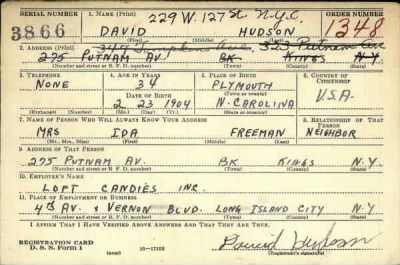 SERIAL NUMBER 1. NAME (Print) ORDER NUMBER
229 W. 127 St N.Y.C.
3866 DAVID HUDSON 1348
(First) (Middle) (Last)
2. ADDRESS (Print) 323 Putnam Ave
275 PUTNAM AV. BK KINGS N.Y.
(Number and street or R. F. D. number) (Town) (County) (State)
3. TELEPHONE 4. AGE IN YEARS 5. PLACE OF BIRTH 6. COUNTRY OF CITIZENSHIP
NONE 36 PLYMOUTH
DATE OF BIRTH (Town or county) U.S.A.
2 23 1904 N-CAROLINA
(Exchange) (Number) (Mo.) (Day) (Yr.) (State or country)
7. NAME OF PERSON WHO WILL ALWAYS KNOW YOUR ADDRESS 8. RELATIONSHIP OF THAT PERSON
MRS IDA FREEMAN NEIGHBOR
(Mr., Mrs., Miss) (First) (Middle) (Last)
9. ADDRESS OF THAT PERSON
275 PUTNAM AV. BK KINGS N.Y.
(Number and street or R. F. D. number) (Town) (County) (State)
10. EMPLOYER'S NAME
LOFT CANDIES INC.
11. PLACE OF EMPLOYMENT OR BUSINESS
4th AV. & VERNON BLVD. LONG ISLAND CITY N.Y.
(Number and street or R. F. D. number) (Town) (County) (State)
I AFFIRM THAT I HAVE VERIFIED ABOVE ANSWERS AND THAT THEY ARE TRUE.
REGISTRATION CARD
D. S. S. Form 1 (over) 16—17105 David Hudson
(Registrant's signature)